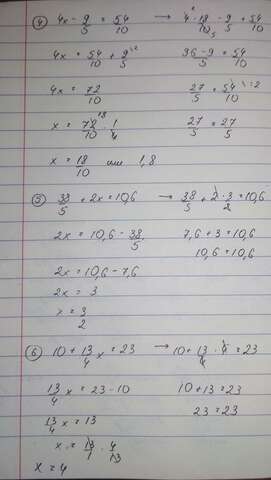 ④ 4x - 9/5 = 54/10 → 4·18/10 - 9/5 = 54/10
4x = 54/10 + 9/5 ·2   36-9/5 = 54/10
4x = 72/10   27/5 = 54/10 :2
x = 72/10 · 1/4   27/5 = 27/5
x = 18/10 или 1,8
⑤ 38/5 + 2x = 10,6 → 38/5 + 2·3/2 = 10,6
2x = 10,6 - 38/5   7,6 + 3 = 10,6
2x = 10,6 - 7,6   10,6 = 10,6
2x = 3
x = 3/2
⑥ 10 + 13/4 x = 23 → 10 + 13/4 · 4 = 23
13/4 x = 23 - 10   10 + 13 = 23
13/4 x = 13   23 = 23
x = 13/1 · 4/13
x = 4